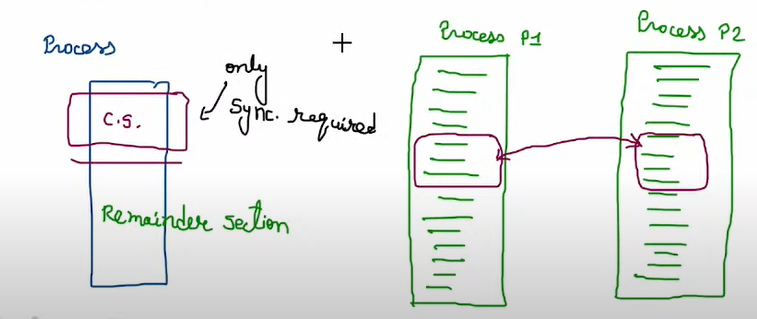 Process
C.S.
only
Sync. required
Remainder section
+
Process P1
Process P2